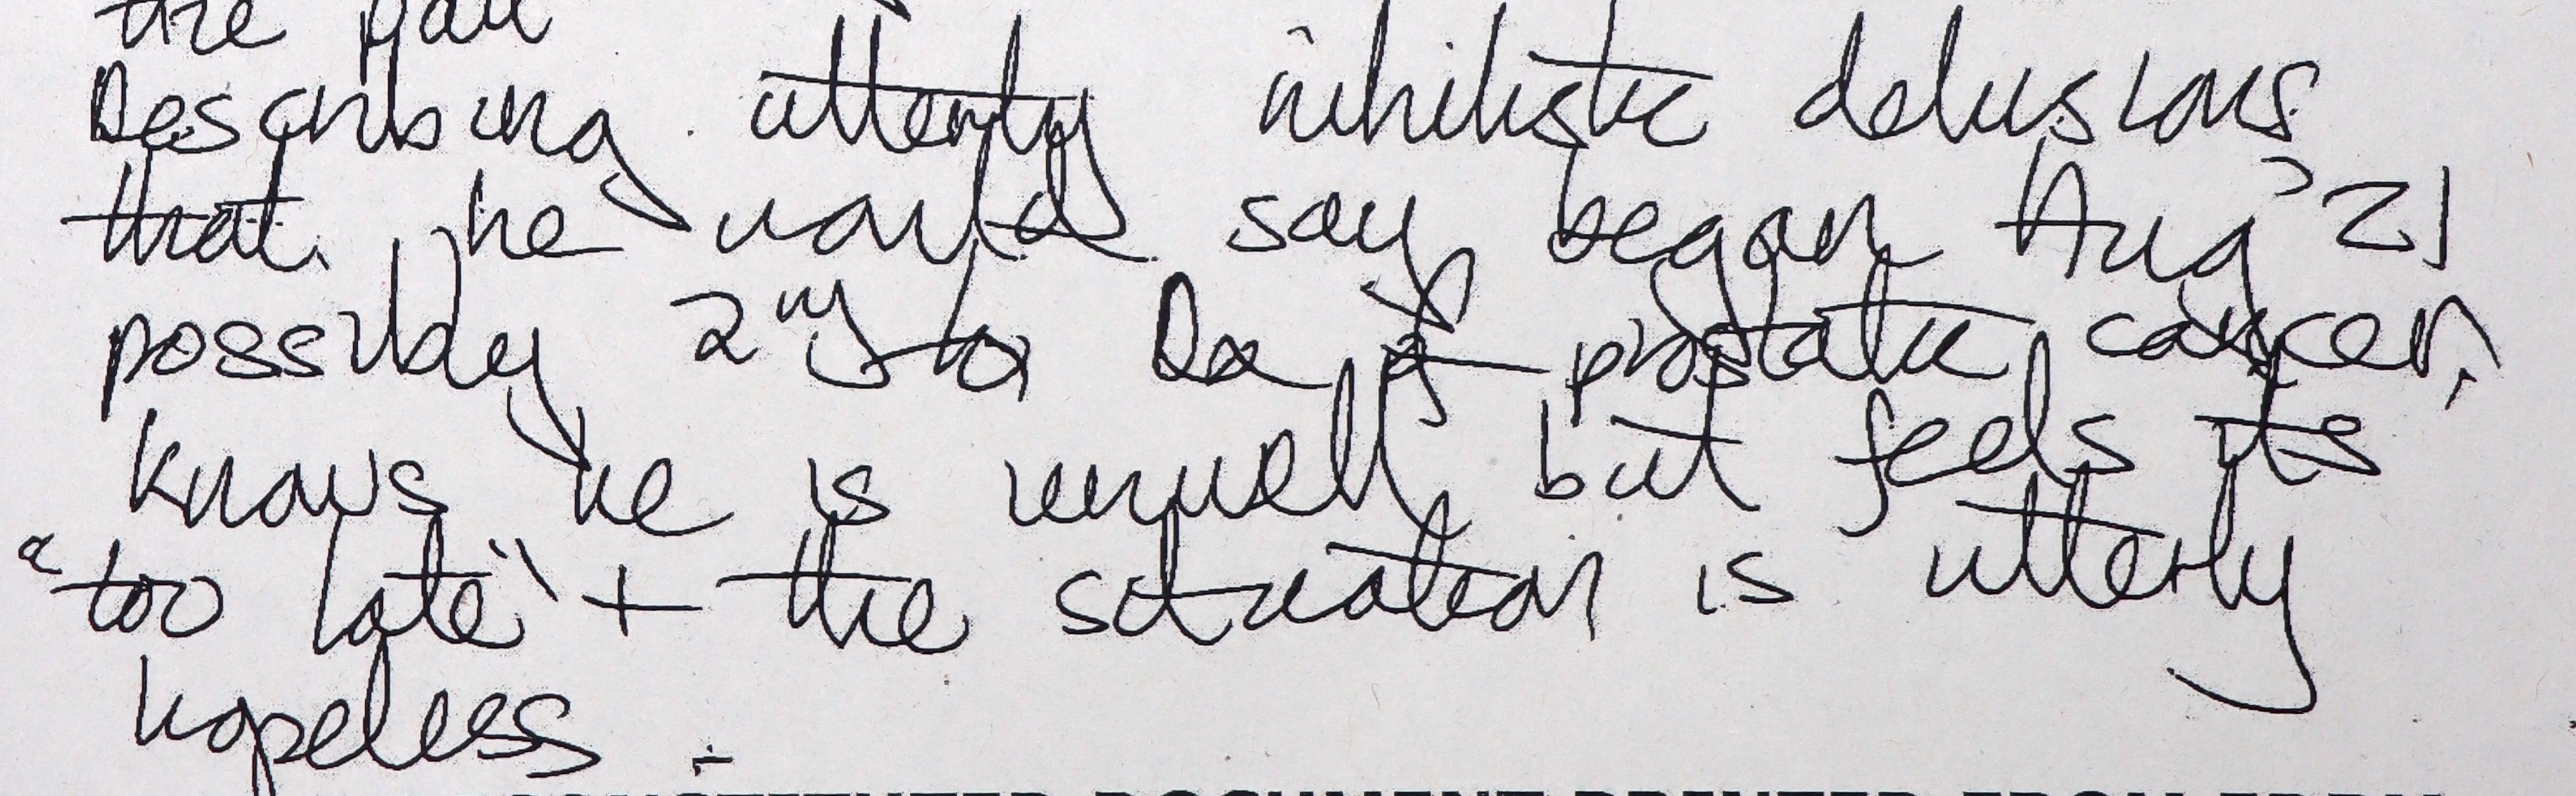 the
Describing utterly nihilistic delusions
that he would say began Aug '21
possibly 2ry to Dx of prostatic cancer,
knows he is unwell but feels its
"too late" + the situation is utterly
hopeless.
DOCUMENT PRINTED FROM